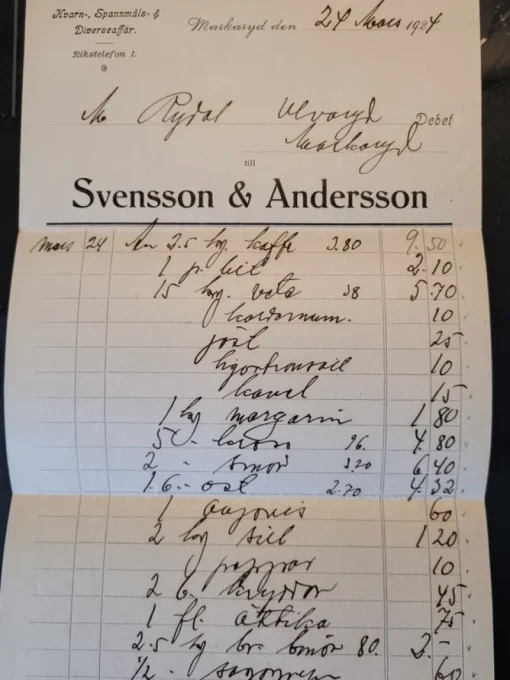 Kvarn-, Spannmåls- &
Diverseaffär.
Rikstelefon 1.
Markaryd den 24 Mars 1924
Rydal Ulvaryd Debet
Markaryd
till
Svensson & Andersson
mars 24 An 2.5 kg. kaffe 3.80 9.50
1 p. 2.10
15 kg. vete 38 5.70
kardemum. 10
jäst 25
10
kanel 15
1 kg margarin 1 80
50 - 96. 4.80
2 - smör 3.20 6 40
1.6 - ost 2.70 4.32
1 ansjovis 60
2 kg sill 1 20
peppar 10
2 kryddor 45
1 fl. ättika 75
2.5 kg br. bönor 80. 2.-
1/2 - sagogryn 60